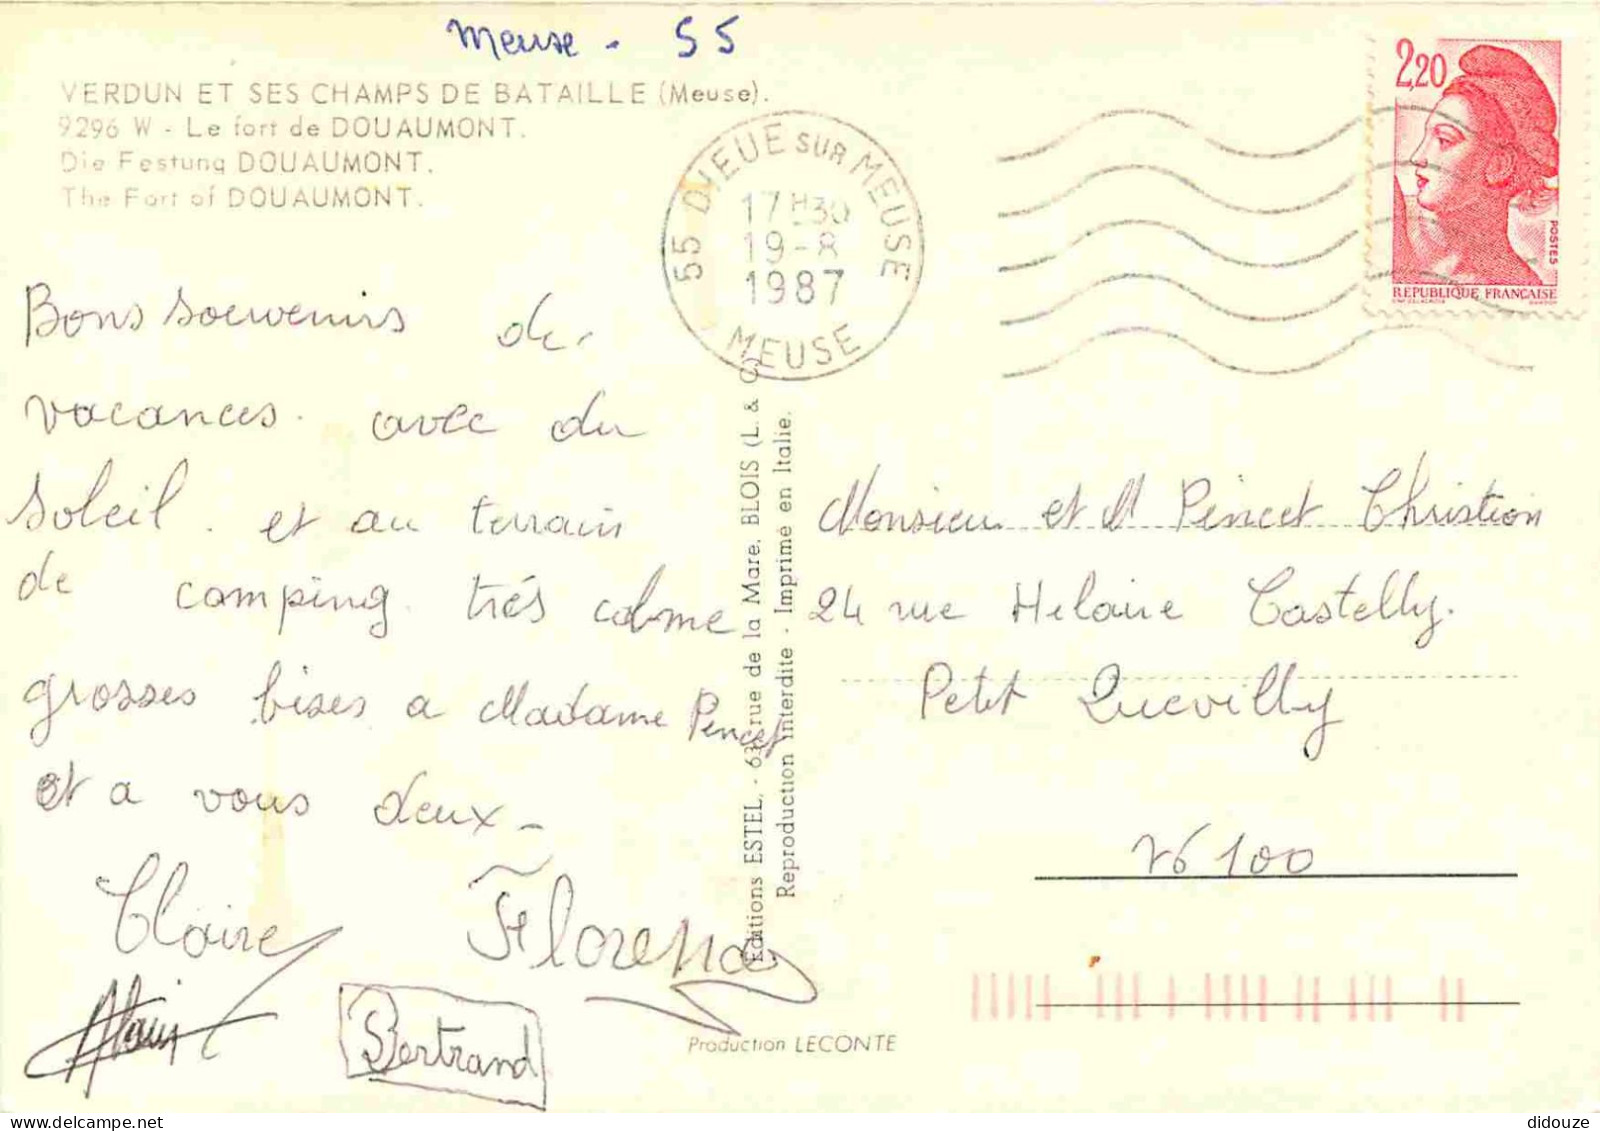 Meuse - 55
VERDUN ET SES CHAMPS DE BATAILLE (Meuse).
9296 W - Le fort de DOUAUMONT.
Die Festung DOUAUMONT.
The Fort of DOUAUMONT.
55 DIEUE SUR MEUSE
17 H30
19-8
1987
MEUSE
2,20
POSTES
REPUBLIQUE FRANÇAISE
Bons souvenirs de
vacances. avec du
soleil. et au terrain
de camping. trés calme
grosses bises a Madame Pencet
et a vous deux -
Claire Florence
Alain Bertrand
Editions ESTEL. - 63, rue de la Mare. BLOIS (L. & C.)
Reproduction interdite - Imprimé en Italie.
Monsieur et M Pencet Christian
24 rue Helaine Castelly.
Petit Quevilly
76 100
Production LECONTE
didouze